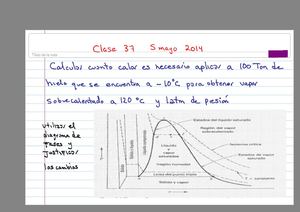 Título de la nota
Clase 37 5 mayo 2014
Calcular cuanto calor es necesario aplicar a 100 Ton de
hielo que se encuentra a -10°C para obtener vapor
sobrecalentado a 120 °C y 1atm de presión
utilizar el
diagrama de
fases y
justificar
los cambios
Estados del líquido saturado
Región del vapor
sobrecalentado
Isoterma crítica
Líquido
y
vapor
saturados
Estados de vapor
saturado
Región húmeda
Línea del punto triple
Sólido y vapor
T = constante